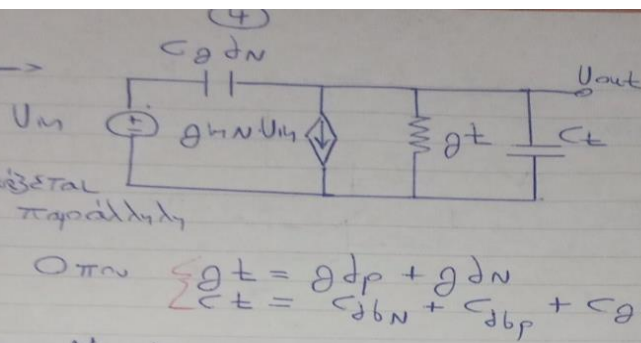 4
CgdN
Uout
Uin
gmN Uin
gt
Ct
παράλληλη
Οπου gt = gdp + gdN
Ct = CdbN + Cdbp + Cg